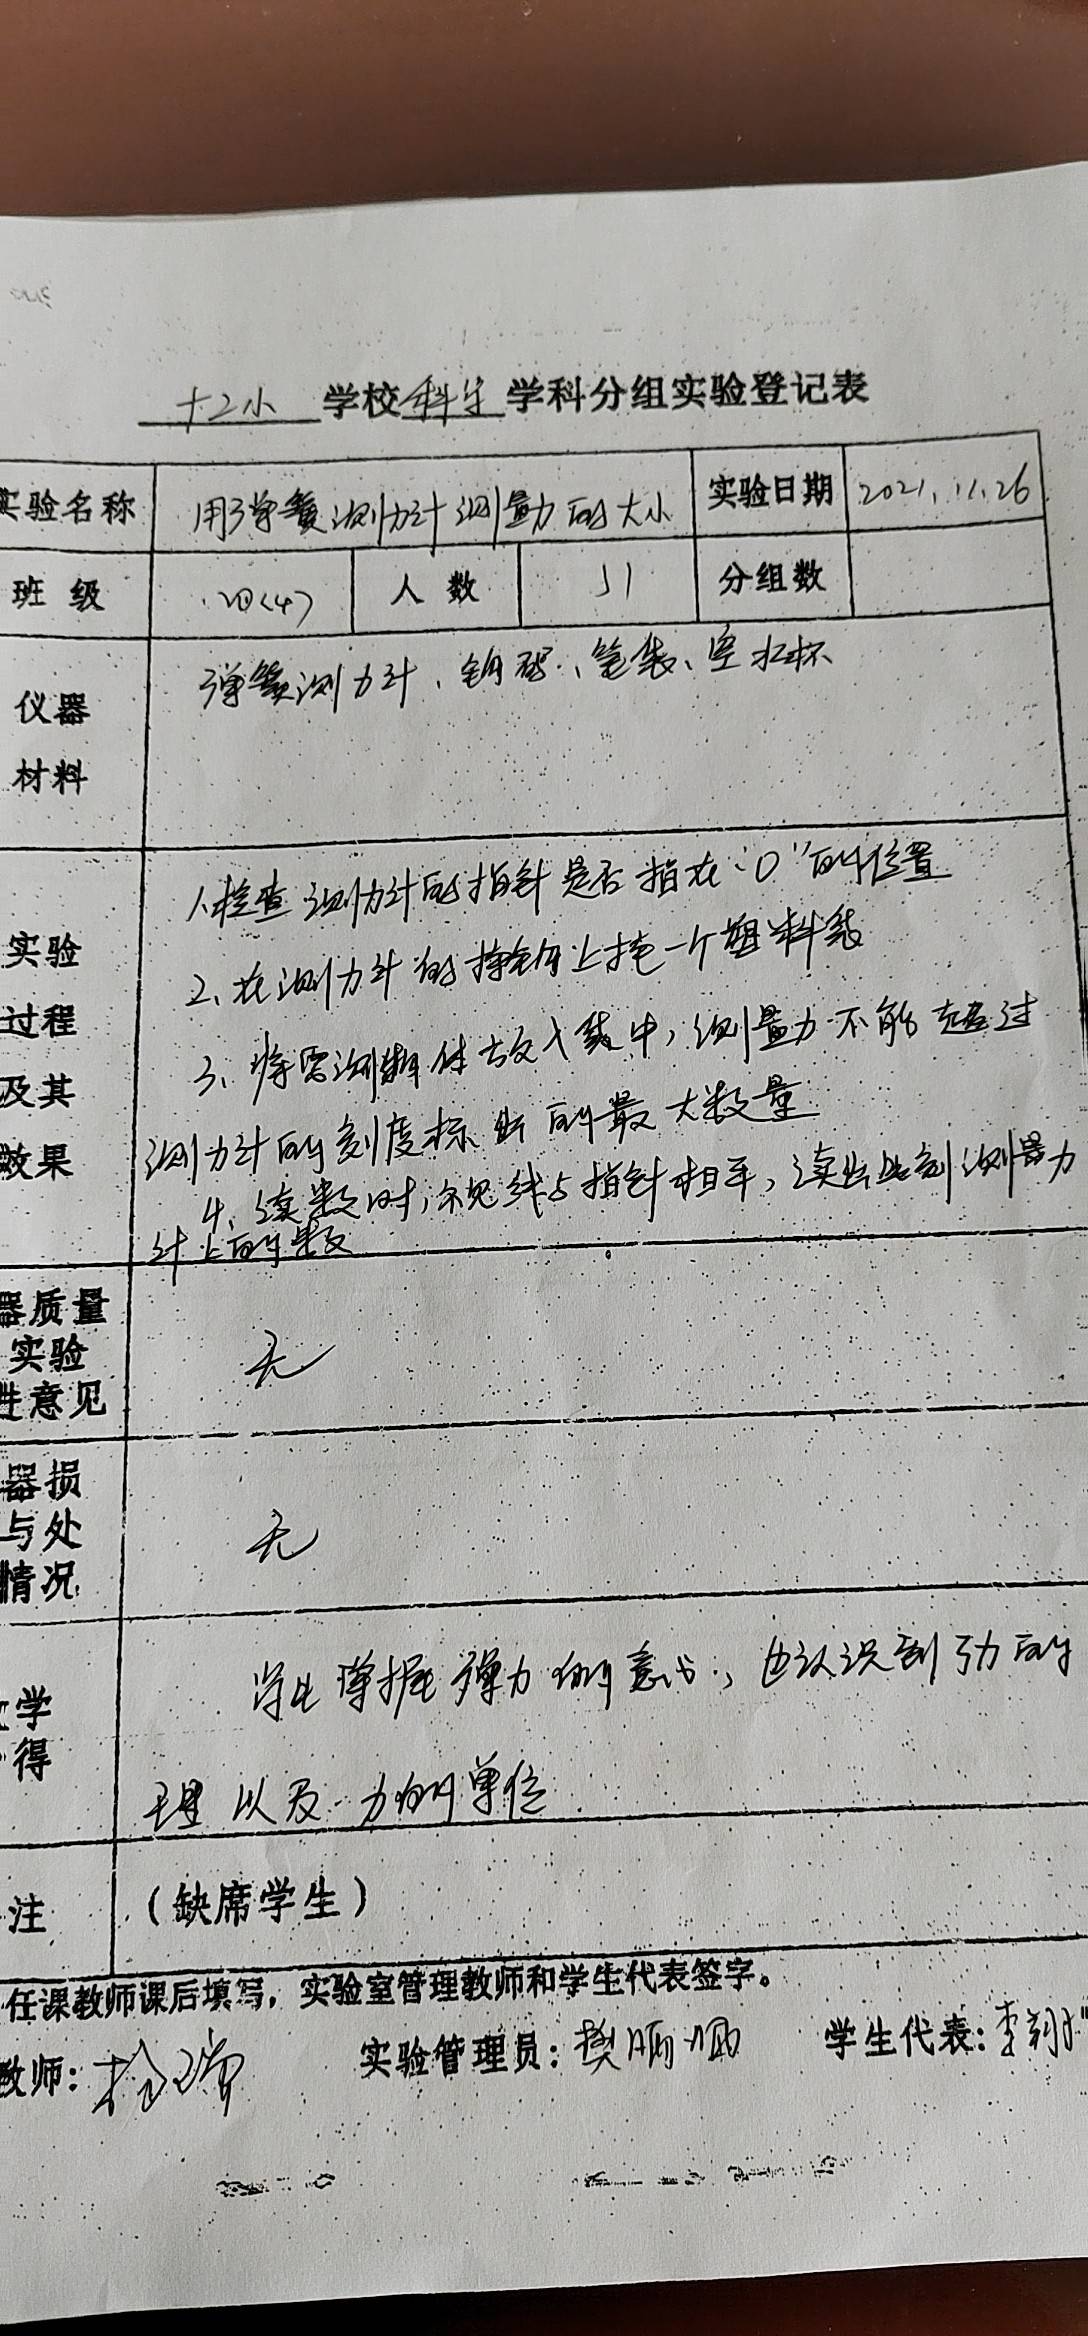 十二小 学校 科学 学科分组实验登记表
实验名称 用弹簧测力计测量力的大小 实验日期 2021.11.26
班级 四(4) 人数 51 分组数
仪器材料 弹簧测力计、钩码、笔袋、空水杯
实验过程及其效果
1、检查测力计的指针是否指在“0”的位置
2、在测力计的挂钩上挂一个塑料袋
3、将需测物体放入袋中,测量力不能超过
测力计的刻度标出的最大数量
4、读数时,视线与指针相平,读出此刻测量力
计上的数
器质量
实验
意见
无
器损
与处
情况
无
学
得
学生掌握弹力的意义,也认识到引力的
理以及力的单位
注 (缺席学生)
任课教师课后填写,实验室管理教师和学生代表签字。
教师: 实验管理员:樊丽娜 学生代表:李